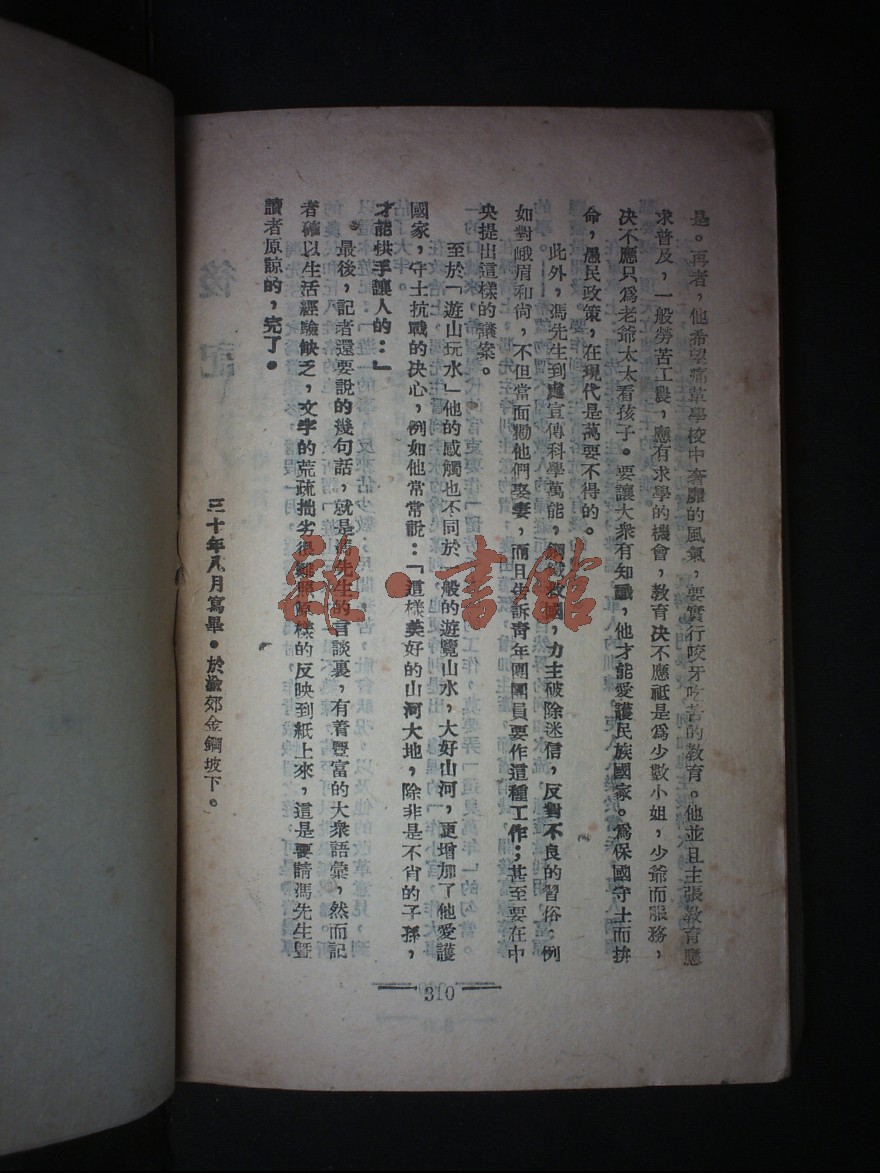 是。再者，他希望痛革學校中奢靡的風氣，要實行咬牙吃苦的教育。他並且主張教育應
求普及，一般勞苦工農，應有求學的機會，教育决不應祗是爲少數小姐，少爺而服務，
决不應只爲老爺太太看孩子。要讓大衆有知識，他才能愛護民族國家。爲保國守土而拚
命，愚民政策，在現代是萬要不得的。
此外，馮先生到處宣傳科學萬能，鋼鐵救國，力主破除迷信，反對不良的習俗，例
如對峨眉和尙，不但當面勸他們娶妻，而且告訴靑年團團員要作這種工作；甚至要在中
央提出這樣的議案。
至於「遊山玩水」他的感觸也不同於一般的遊覽山水，大好山河，更增加了他愛護
國家，守土抗戰的决心，例如他常常說：「這樣美好的山河大地，除非是不肖的子孫，
才能拱手讓人的：」
最後，記者還要說的幾句話，就是馮先生的言談裏，有着豐富的大衆語彙，然而記
者確以生活經驗缺乏，文字的荒疏拙劣很難照原樣的反映到紙上來，這是要請馮先生曁
讀者原諒的，完了。
三十年八月寫畢。於渝郊金鋼坡下。
310
雜·書館